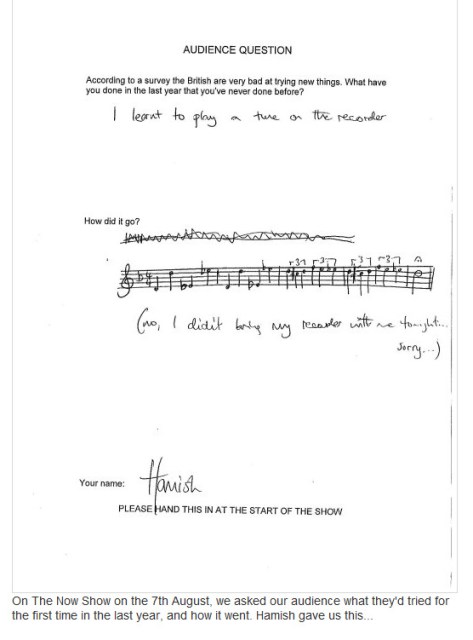 AUDIENCE QUESTION
According to a survey the British are very bad at trying new things. What have
you done in the last year that you've never done before?
I learnt to play a tune on the recorder
How did it go?
(no, I didn't bring my recorder with me tonight...
sorry...)
Your name: Hamish
PLEASE HAND THIS IN AT THE START OF THE SHOW
On The Now Show on the 7th August, we asked our audience what they'd tried for
the first time in the last year, and how it went. Hamish gave us this...